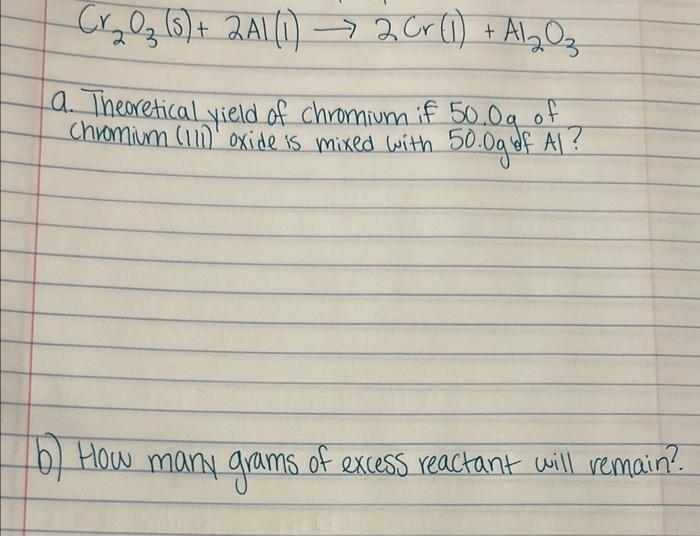 Cr₂O₃(s) + 2Al(l) → 2Cr(l) + Al₂O₃
a. Theoretical yield of chromium if 50.0g of
chromium (III) oxide is mixed with 50.0g of Al?
b) How many grams of excess reactant will remain?.